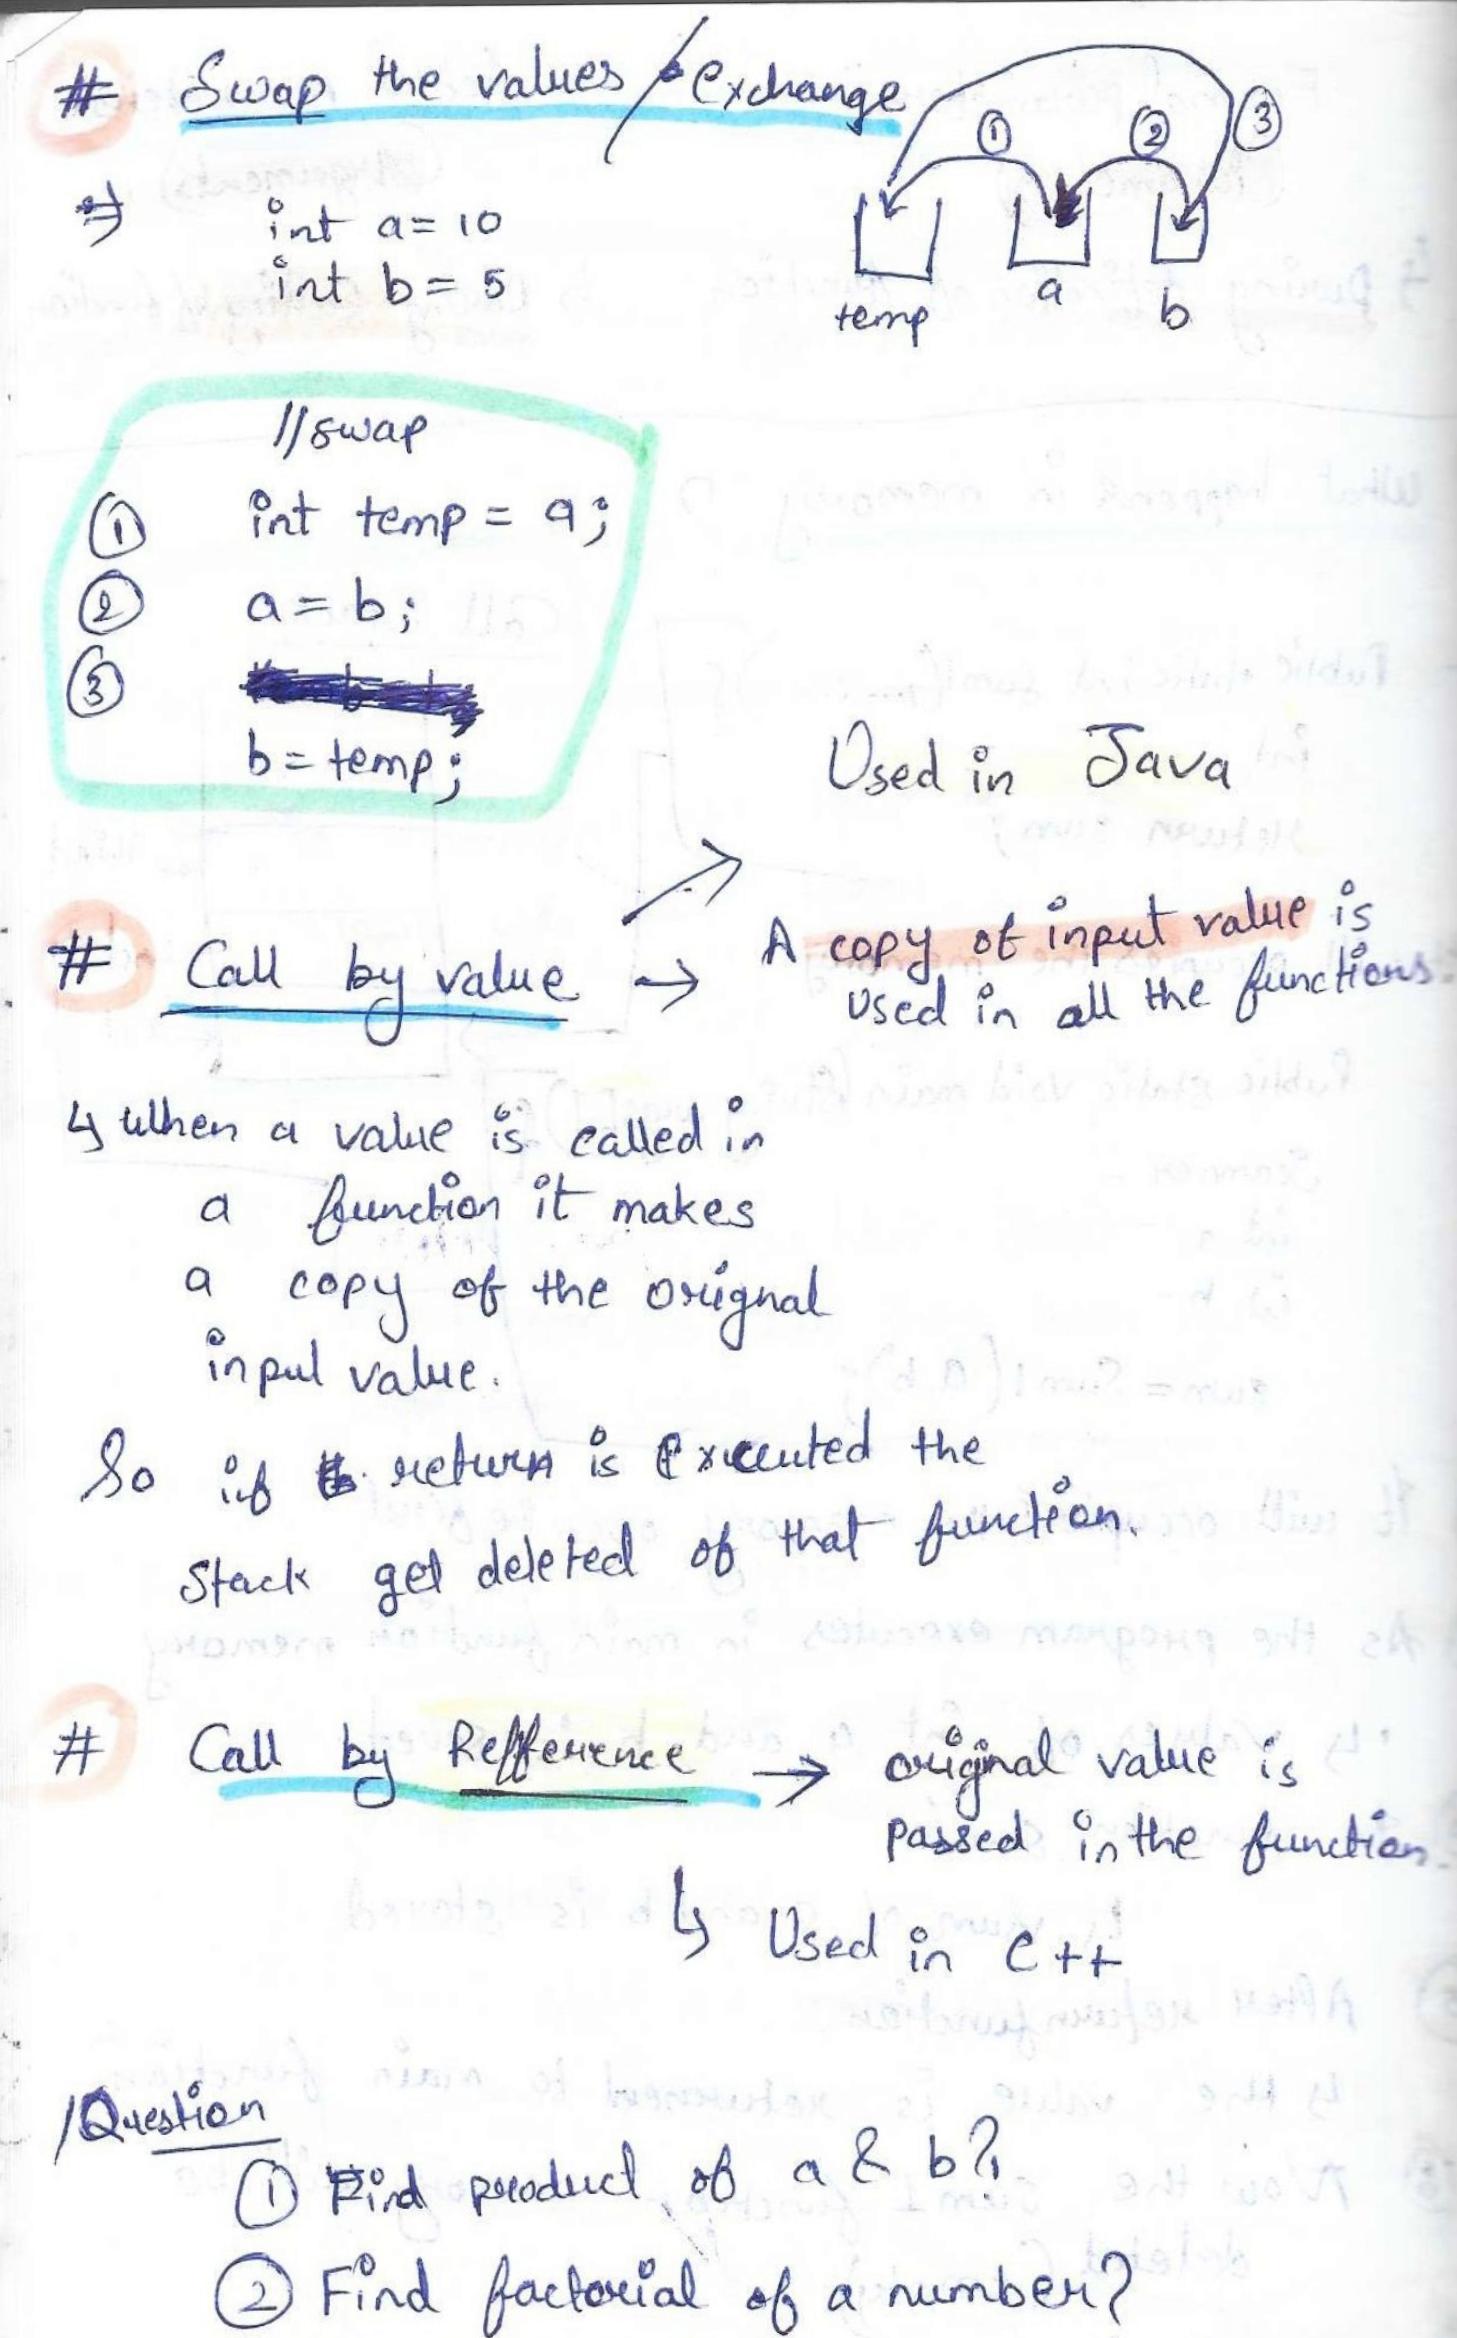 # Swap the values / exchange
① ② ③
temp a b
⇒ int a = 10
int b = 5
//swap
① int temp = a;
② a = b;
③
b = temp;
Used in Java
# Call by value → A copy of input value is
used in all the functions.
↳ When a value is called in
a function it makes
a copy of the orignal
input value.
So if return is executed the
Stack get deleted of that function.
# Call by Refference → original value is
passed in the function.
↳ Used in C++
/Question
① Find product of a & b?
② Find factorial of a number?